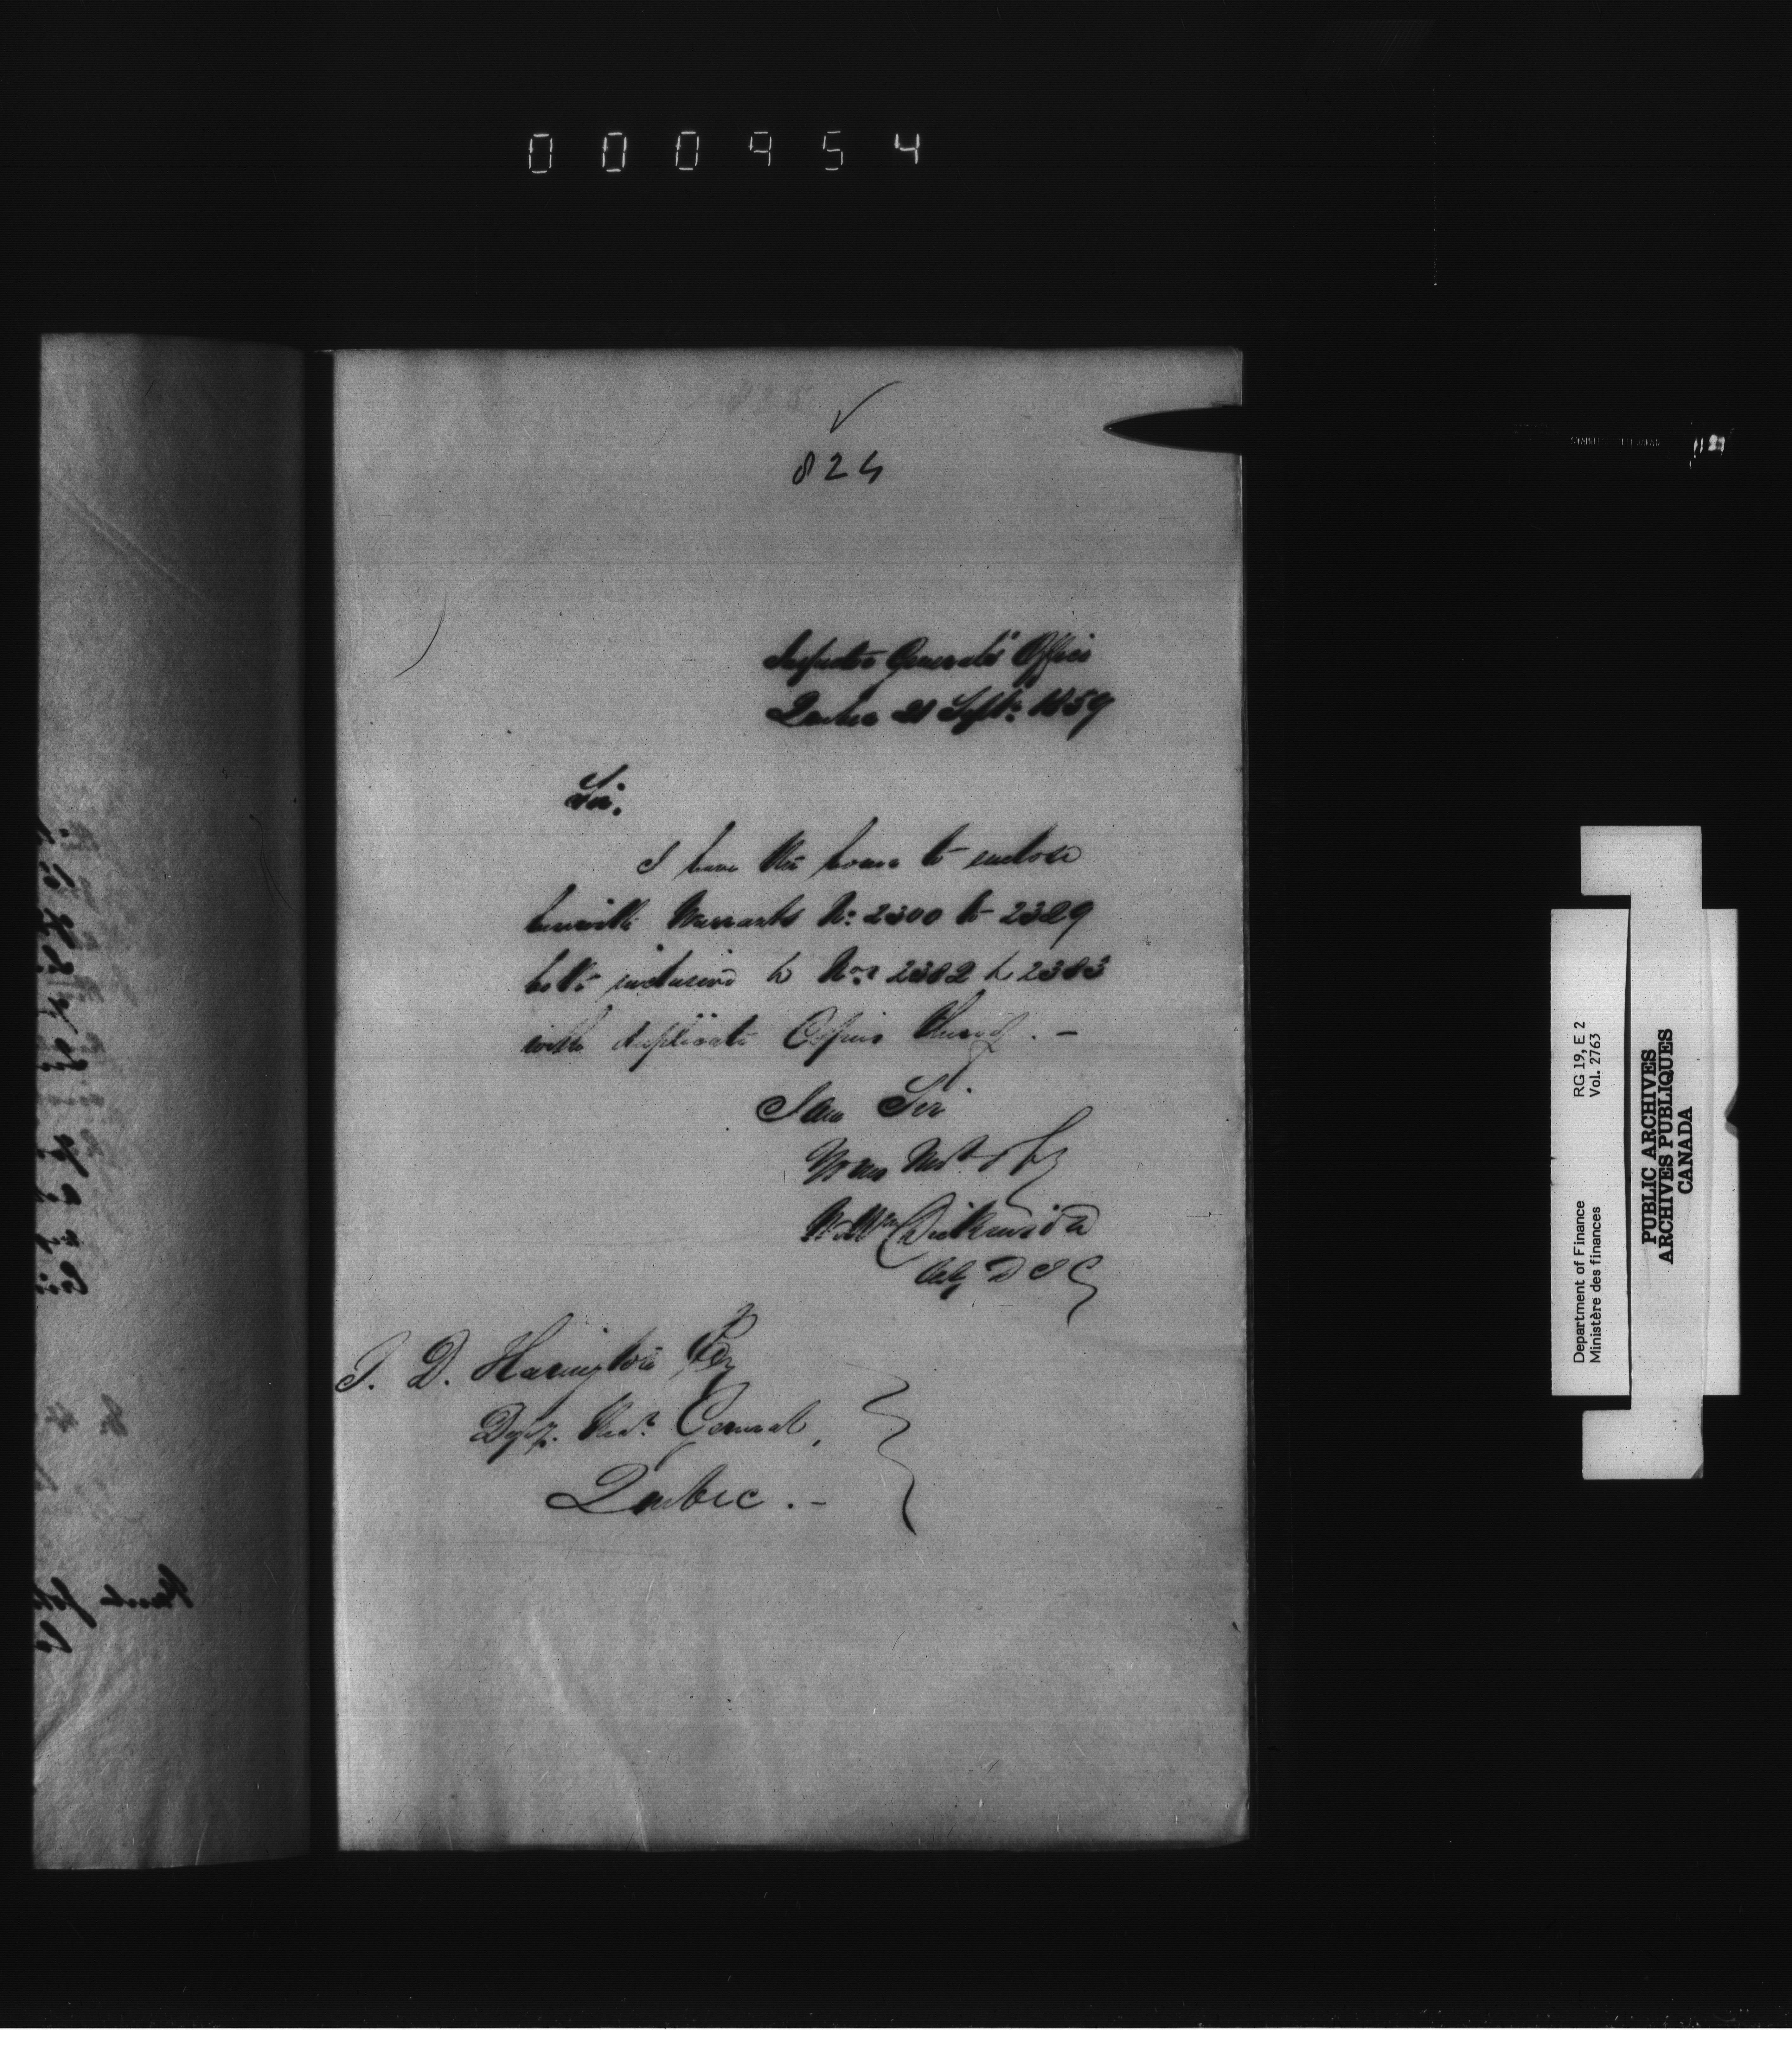 000954
824
Inspector General's Office
Quebec 21 Septr. 1859
Sir.
I have the honor to enclose
herewith Warrants No. 2300 to 2329
both inclusive & Nos. 2382 & 2383
with duplicate Copies thereof. -
I am Sir
Your Most
Dickinson
Actg D I G
T. D. Harington Esq
Depy. Recr. General,
Quebec. -
Department of Finance RG 19, E 2
Ministère des finances Vol. 2763
PUBLIC ARCHIVES
ARCHIVES PUBLIQUES
CANADA